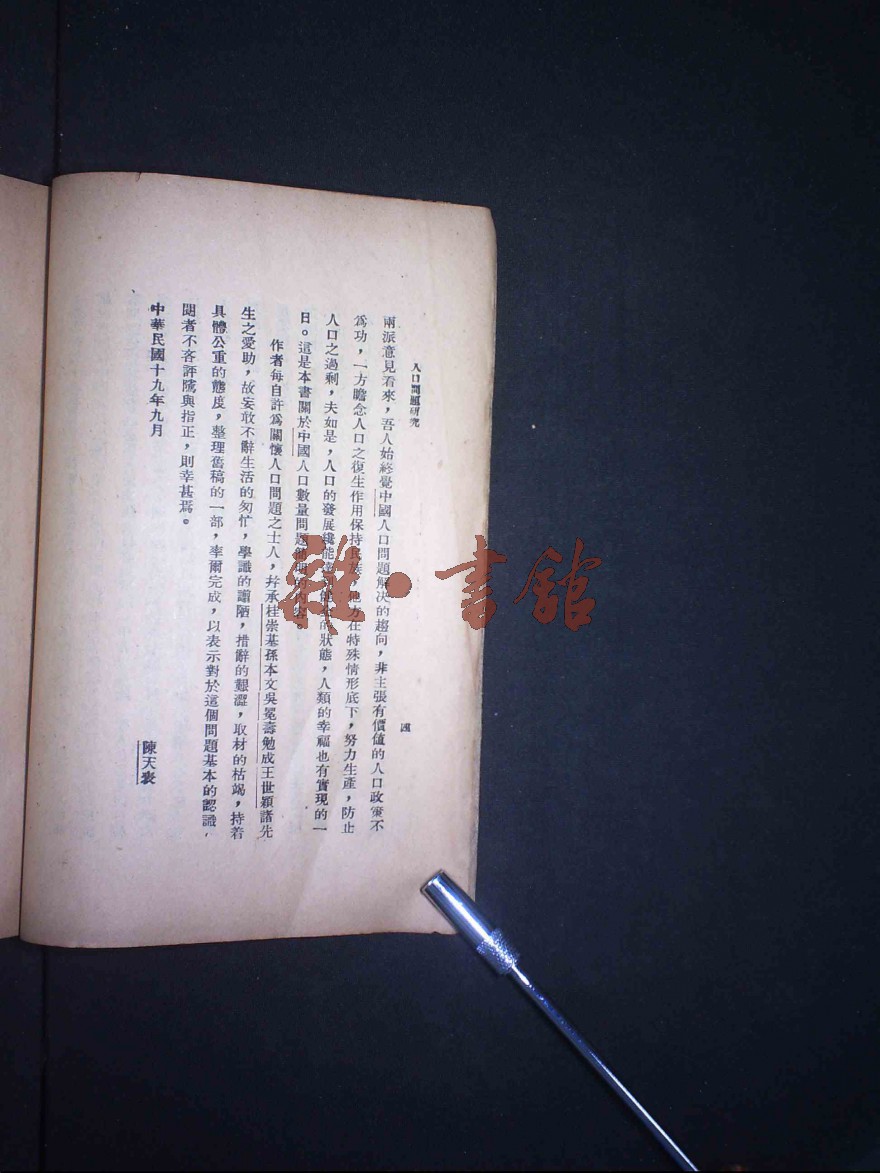 人口問題研究
四
兩派意見看來，吾人始終覺中國人口問題解決的趨向，非主張有價值的人口政策不
為功，一方瞻念人口之復生作用保持民族，他方在特殊情形底下，努力生產，防止
人口之過剩，夫如是，人口的發展纔能達到健全的狀態，人類的幸福也有實現的一
日。這是本書關於中國人口數量問題簡明的內容。
作者每自許為關懷人口問題之士人，并承桂崇基孫本文吳冕壽勉成王世穎諸先
生之愛助，故妄敢不辭生活的匆忙，學識的譾陋，措辭的艱澀，取材的枯竭，持着
具體公重的態度，整理舊稿的一部，率爾完成，以表示對於這個問題基本的認識，
閱者不吝評隲與指正，則幸甚焉。
中華民國十九年九月
陳天表
雜·書館